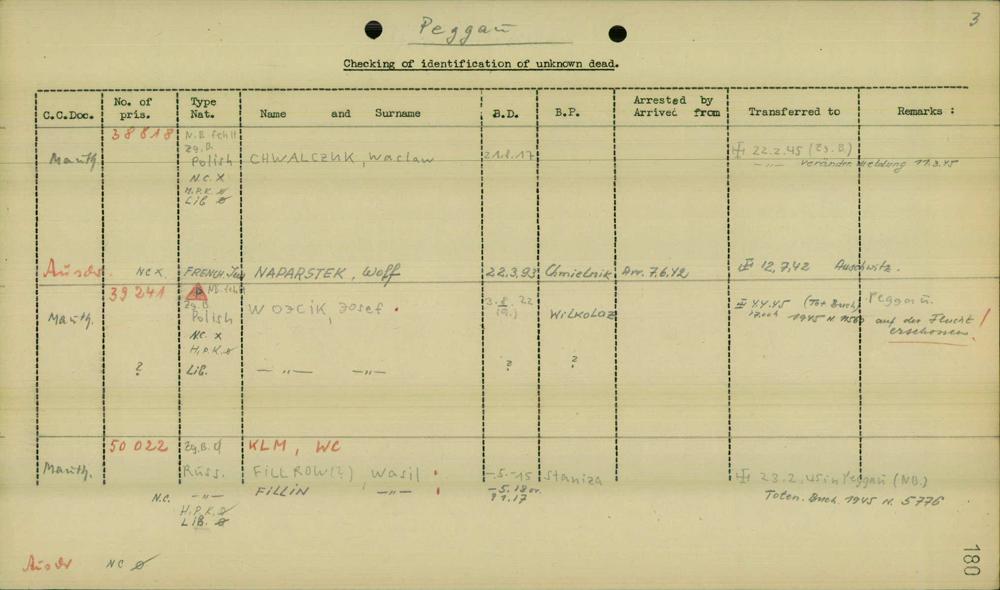 3
Peggau
Checking of identification of unknown dead.
C.C.Doc. No. of pris. Type Nat. Name and Surname B.D. B.P. Arrested by Arrived from Transferred to Remarks :
38818 N.B. fehlt
Zg.B.
Mauth. Polish CHWALCZUK, Waclaw 21.8.17 22.2.45 (Zg.B.)
-"- Veränder. Meldung 11.3.45
N.C. x
H.P.K. ø
Lib ø
Auschw. N.C x. FRENCH Jew NAPARSTEK, Wolf 22.3.93 Chmielnik Arr. 7.6.42 12.7.42 Auschwitz.
39241 P N.B. fehlt
Zg.B.
Mauth. Polish WOJCIK, Josef 3.8.22 Wilkolaz 4.4.45 (Tot Buch) Peggau
1945 N. auf der Flucht erschossen!
N.C. x
H.P.K. ø
? Lib. -"- -"- ? ?
50022 Zg.B. KLM, WC
Mauth. Russ. FILLROW(?) Wasil -.5.-15 Staniza 23.2.45 in Peggau (NB.)
N.C. -"- FILLIN -"- -.5.18 or.
1.17 Toten. Buch 1945 N. 5776
H.P.K. ø
LiB. ø
NC ø
180